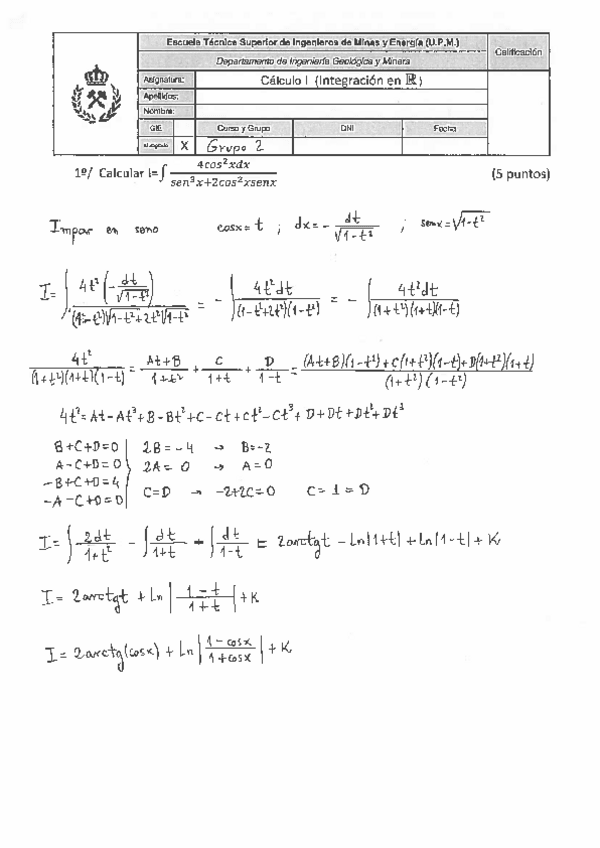 Escuela Técnica Superior de Ingenieros de Minas y Energía (U.P.M.)
Calificación
Departamento de Ingeniería Geológica y Minera
Asignatura: Cálculo I (Integración en ℝ)
Apellidos:
Nombre:
Curso y Grupo DNI Fecha
X Grupo 2
1º/ Calcular I=∫ 4cos²xdx / (sen³x+2cos²xsenx) (5 puntos)
Impar en seno cosx=t ; dx=- dt/√(1-t²) ; senx=√(1-t²)
I=∫ 4t²(-dt/√(1-t²)) / ((1-t²)√(1-t²)+2t²√(1-t²)) = -∫ 4t²dt / ((1-t²+2t²)(1-t²)) = -∫ 4t²dt / ((1+t²)(1+t)(1-t))
4t² / ((1+t²)(1+t)(1-t)) = (At+B)/(1+t²) + C/(1+t) + D/(1-t) = ((At+B)(1-t²)+C(1+t²)(1-t)+D(1+t²)(1+t)) / ((1+t²)(1-t²))
4t²=At-At³+B-Bt²+C-Ct+Ct²-Ct³+D+Dt+Dt²+Dt³
B+C+D=0 | 2B=-4 → B=-2
A-C+D=0 | 2A=0 → A=0
-B+C+D=4
-A-C+D=0 | C=D → -2+2C=0 C=1=D
I=∫ 2dt/(1+t²) - ∫ dt/(1+t) - ∫ dt/(1-t) = 2arctgt - Ln|1+t| + Ln|1-t| + K
I= 2arctgt + Ln |(1-t)/(1+t)| + K
I= 2arctg(cosx) + Ln |(1-cosx)/(1+cosx)| + K